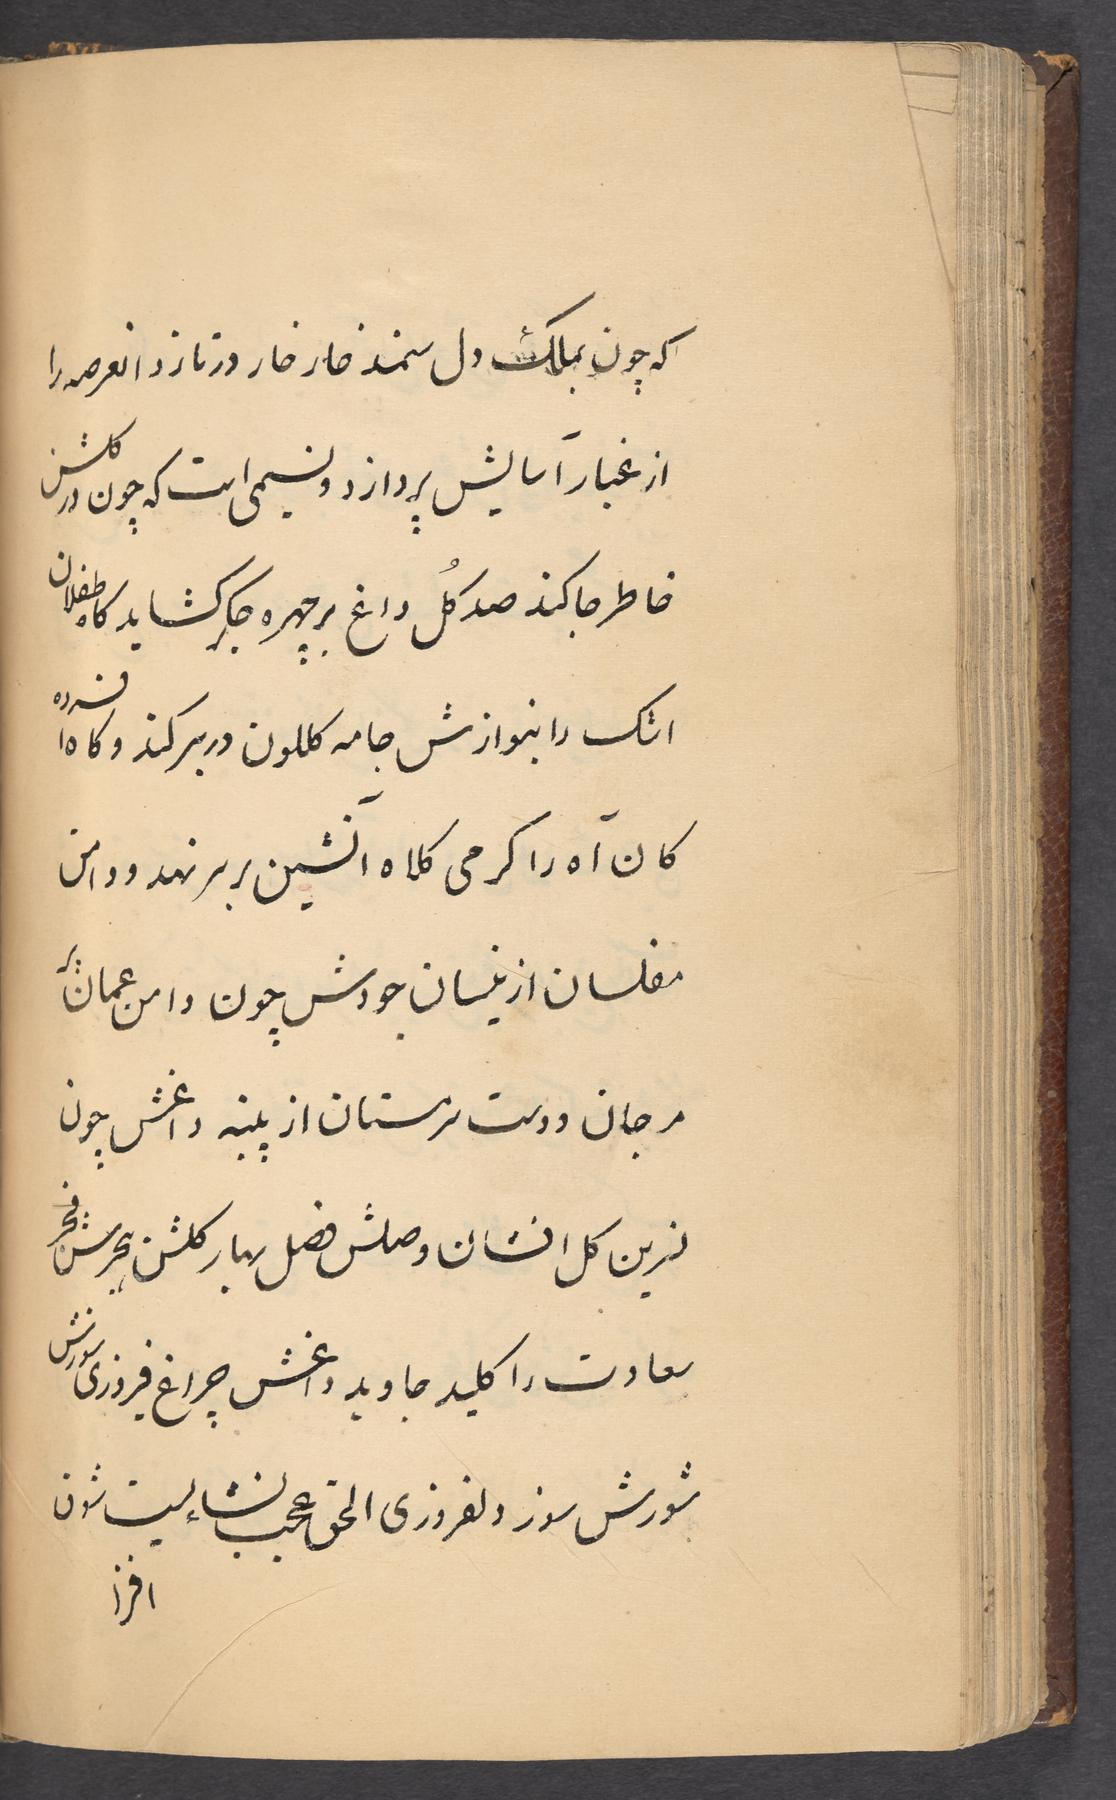 که چون بملک دل سمند خار خار در تازد انعرصه را
از غبار آسایش پردازد و نسیمی است که چون در کلشن
خاطر جا کند صد کُل داغ بر چهره جکر کشاید کاه طفلان
اشک را بنوازش جامه کللون در بر کند و کاه افسرده
کان آه را کرمی کلاه آتشین بر سر نهد و دامن
مفلسان از نیسان جودش چون دامن عمان پر
مرجان و دست سرمستان از پنبه داغش چون
نسرین کل افشان وصلش فصل بهار کلشن هجرش فخر
سعادت را کلید جاوید داغش چراغ فیروزی سوزش
شورش سوز دلفروزی الحق عجب نشاءایست شوق
افزا